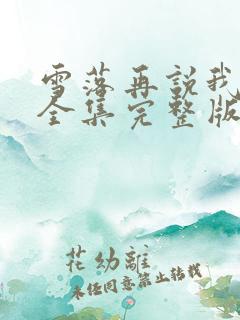 雪落再説我
全集完整版
花幼離
未经同意禁止转载